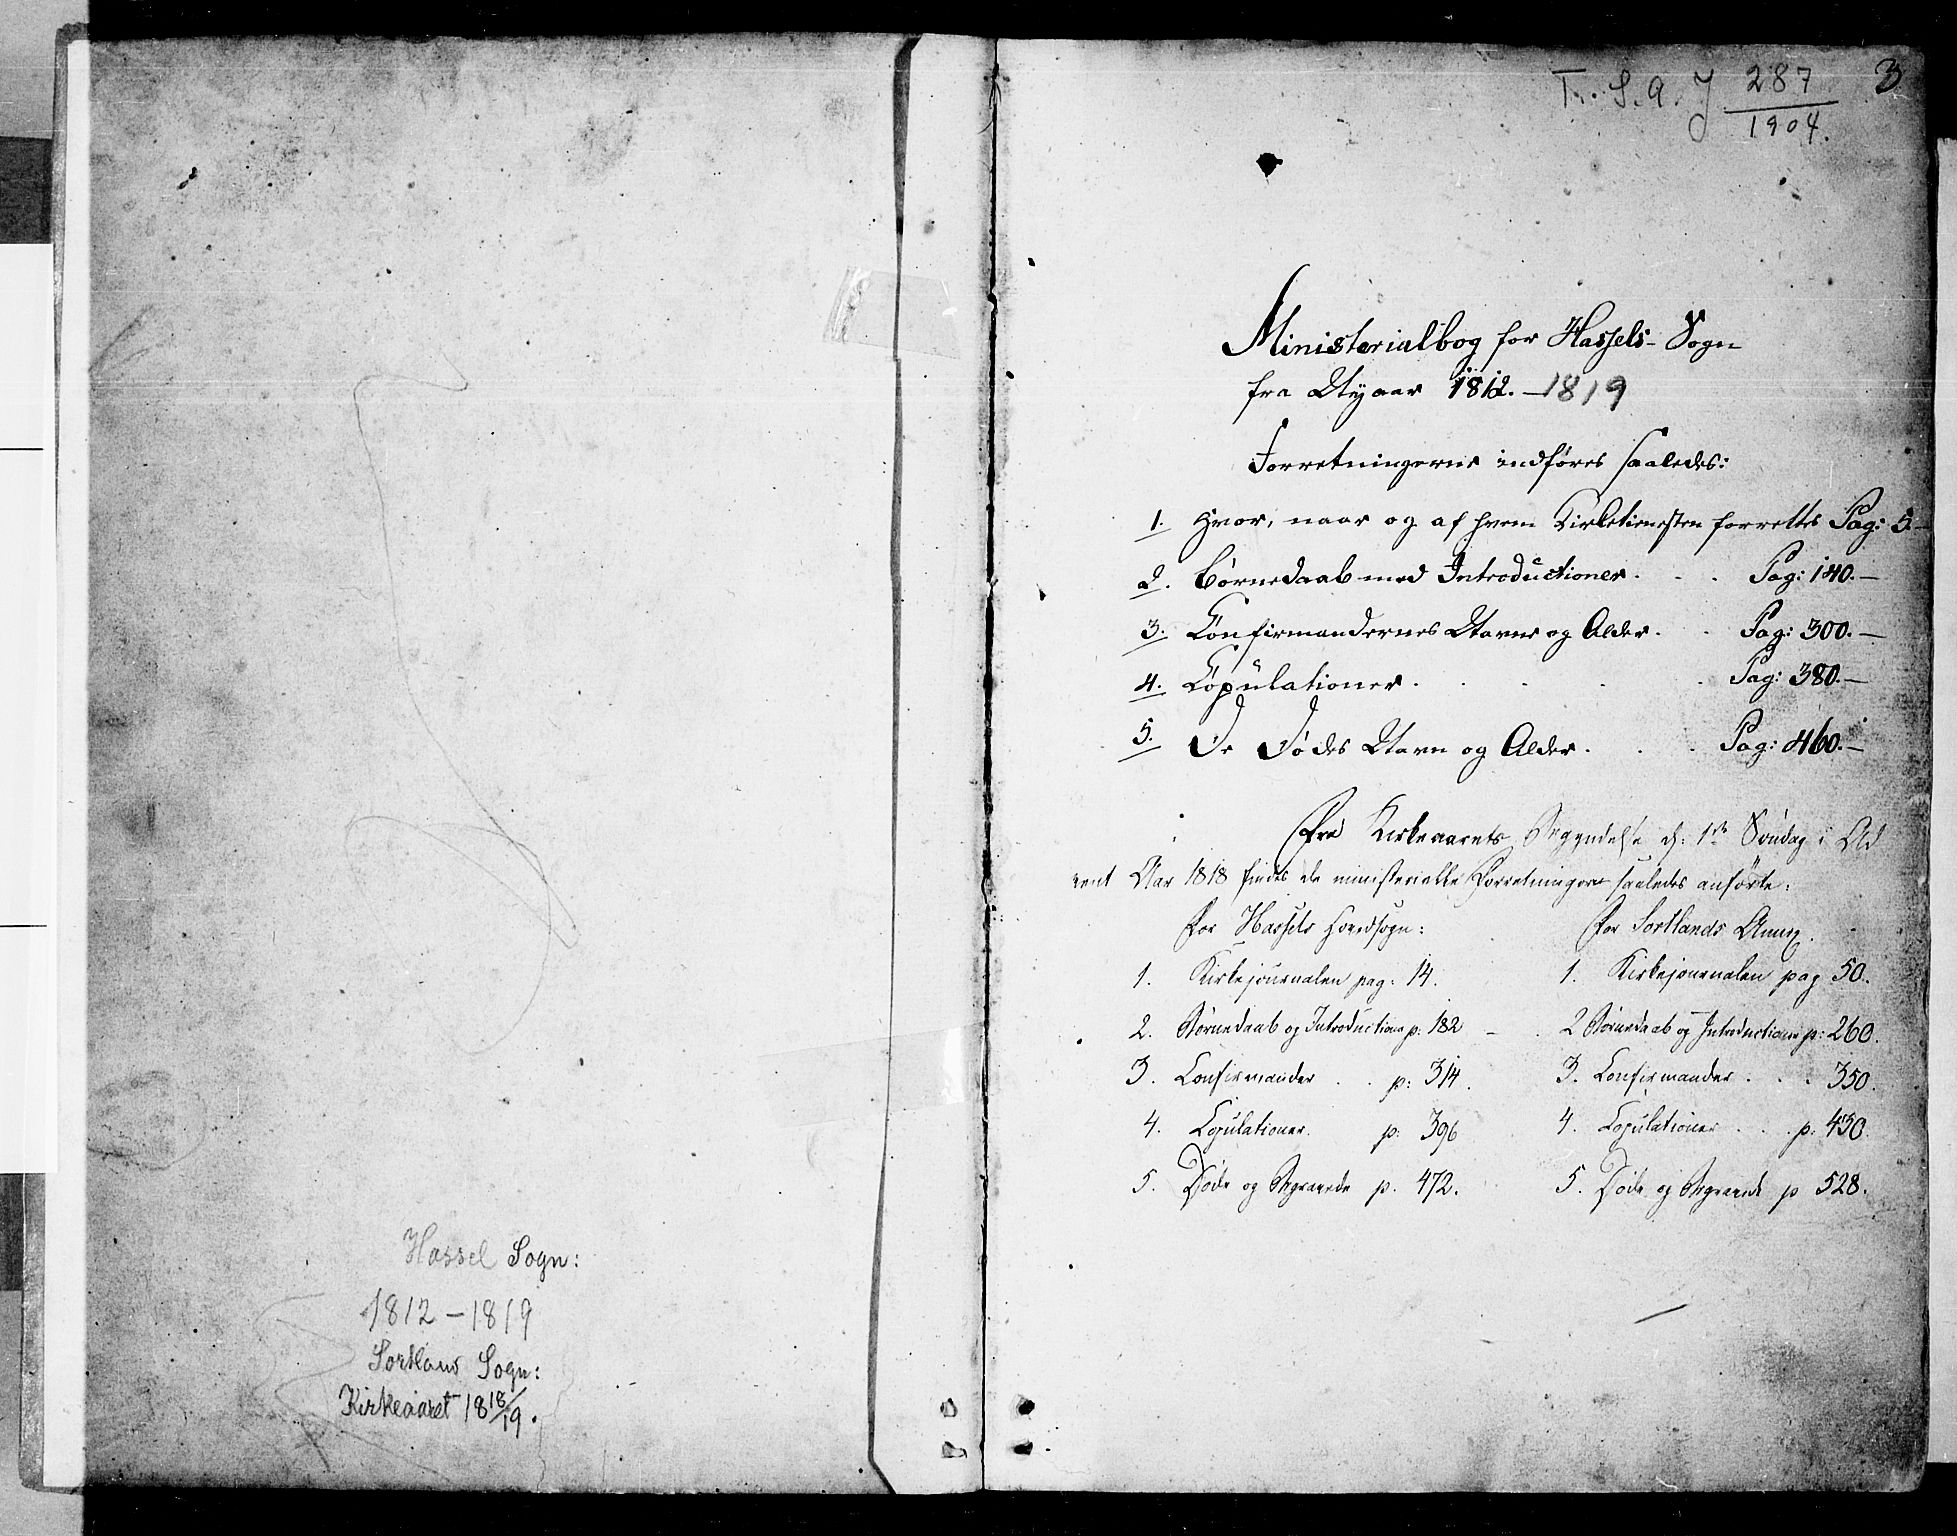 Hassel Sogn:
1812-1819
Sortland Sogn:
Kirkeaaret 1818/19.
T. S. A. J 287/1904.
3
Ministerialbog for Hassels-Sogn
fra Nyaar 1812.-1819
Forretningerne indføres saaledes:
1. Hvor, naar og af hvem Kirketienesten forrettes Pag: 5.-
2. Børnedaab med Introductioner. . . Pag: 140.-
3. Confirmandernes Navne og Alder. . Pag: 300.-
4. Copulationer. . . . . Pag: 380.-
5. De Dødes Navn og Alder. . . Pag: 460.-
Fra Kirkeaarets Begyndelse d: 1ste Søndag i Ad
vent Aar 1818 findes de ministerielle Forretninger saaledes anførte:
For Hassels Hovedsogn:
1. Kirkejournalen pag: 14.
2. Børnedaab og Introductions p: 182
3. Confirmander . . p: 314.
4. Copulationer. p: 396
5. Døde og Begravede p. 472.
For Sortlands Annex.
1. Kirkejournalen pag 50.
2 Børnedaab og Introductions p: 260.
3. Confirmander . . . 350.
4. Copulationer . . . p: 430.
5. Døde og Begravede p 528.